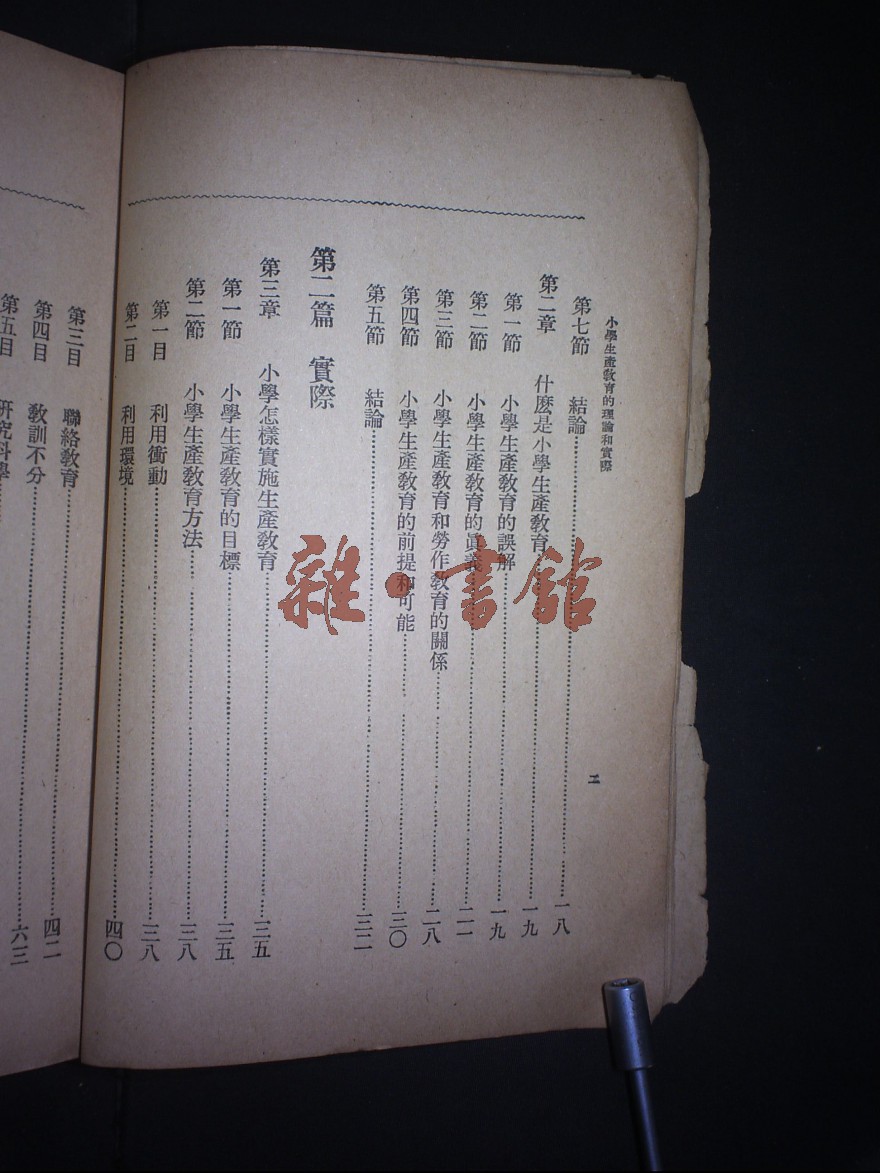 小學生產教育的理論和實際
二
第七節 結論 一八
第二章 什麽是小學生產教育 一九
第一節 小學生產教育的誤解 一九
第二節 小學生產教育的眞義 二一
第三節 小學生產教育和勞作教育的關係 二八
第四節 小學生產教育的前提和可能 三〇
第五節 結論 三二
第二篇 實際
第三章 小學怎樣實施生產教育 三五
第一節 小學生產教育的目標 三五
第二節 小學生產教育方法 三八
第一目 利用衝動 三八
第二目 利用環境 四〇
第三目 聯絡教育
第四目 教訓不分 四二
第五目 研究科學 六三
雜·書館